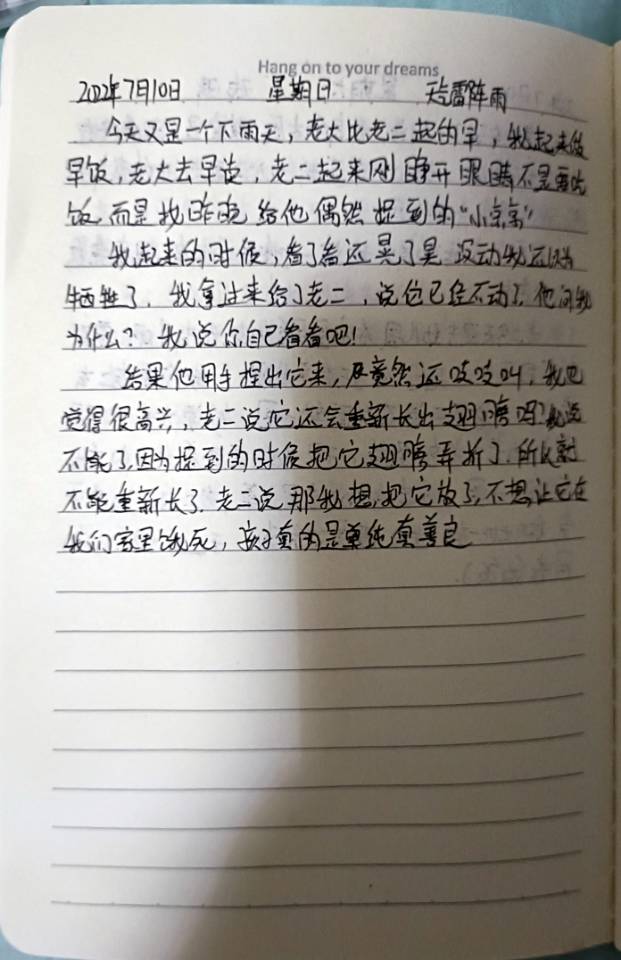 Hang on to your dreams
2022年7月10日 星期日 大雷阵雨
今天又是一个下雨天，老大比老二起的早，我起来做
早饭，老大去早读，老二起来刚睁开眼睛不是要吃
饭 而是找昨晚给他偶然捉到的“小京京”
我起来的时候，看了看还晃了晃 没动我还以为
牺牲了．我拿过来给了老二，说它已经不动了．他问我
为什么？我说你自己看看吧！
结果他用手捏出它来，竟然还吱吱叫，我也
觉得很高兴，老二说它还会重新长出翅膀吗？我说
不能了，因为捉到的时候把它翅膀弄折了．所以就
不能重新长了．老二说那我想把它放了，不想让它在
我们家里饿死，孩子真的是单纯真善良